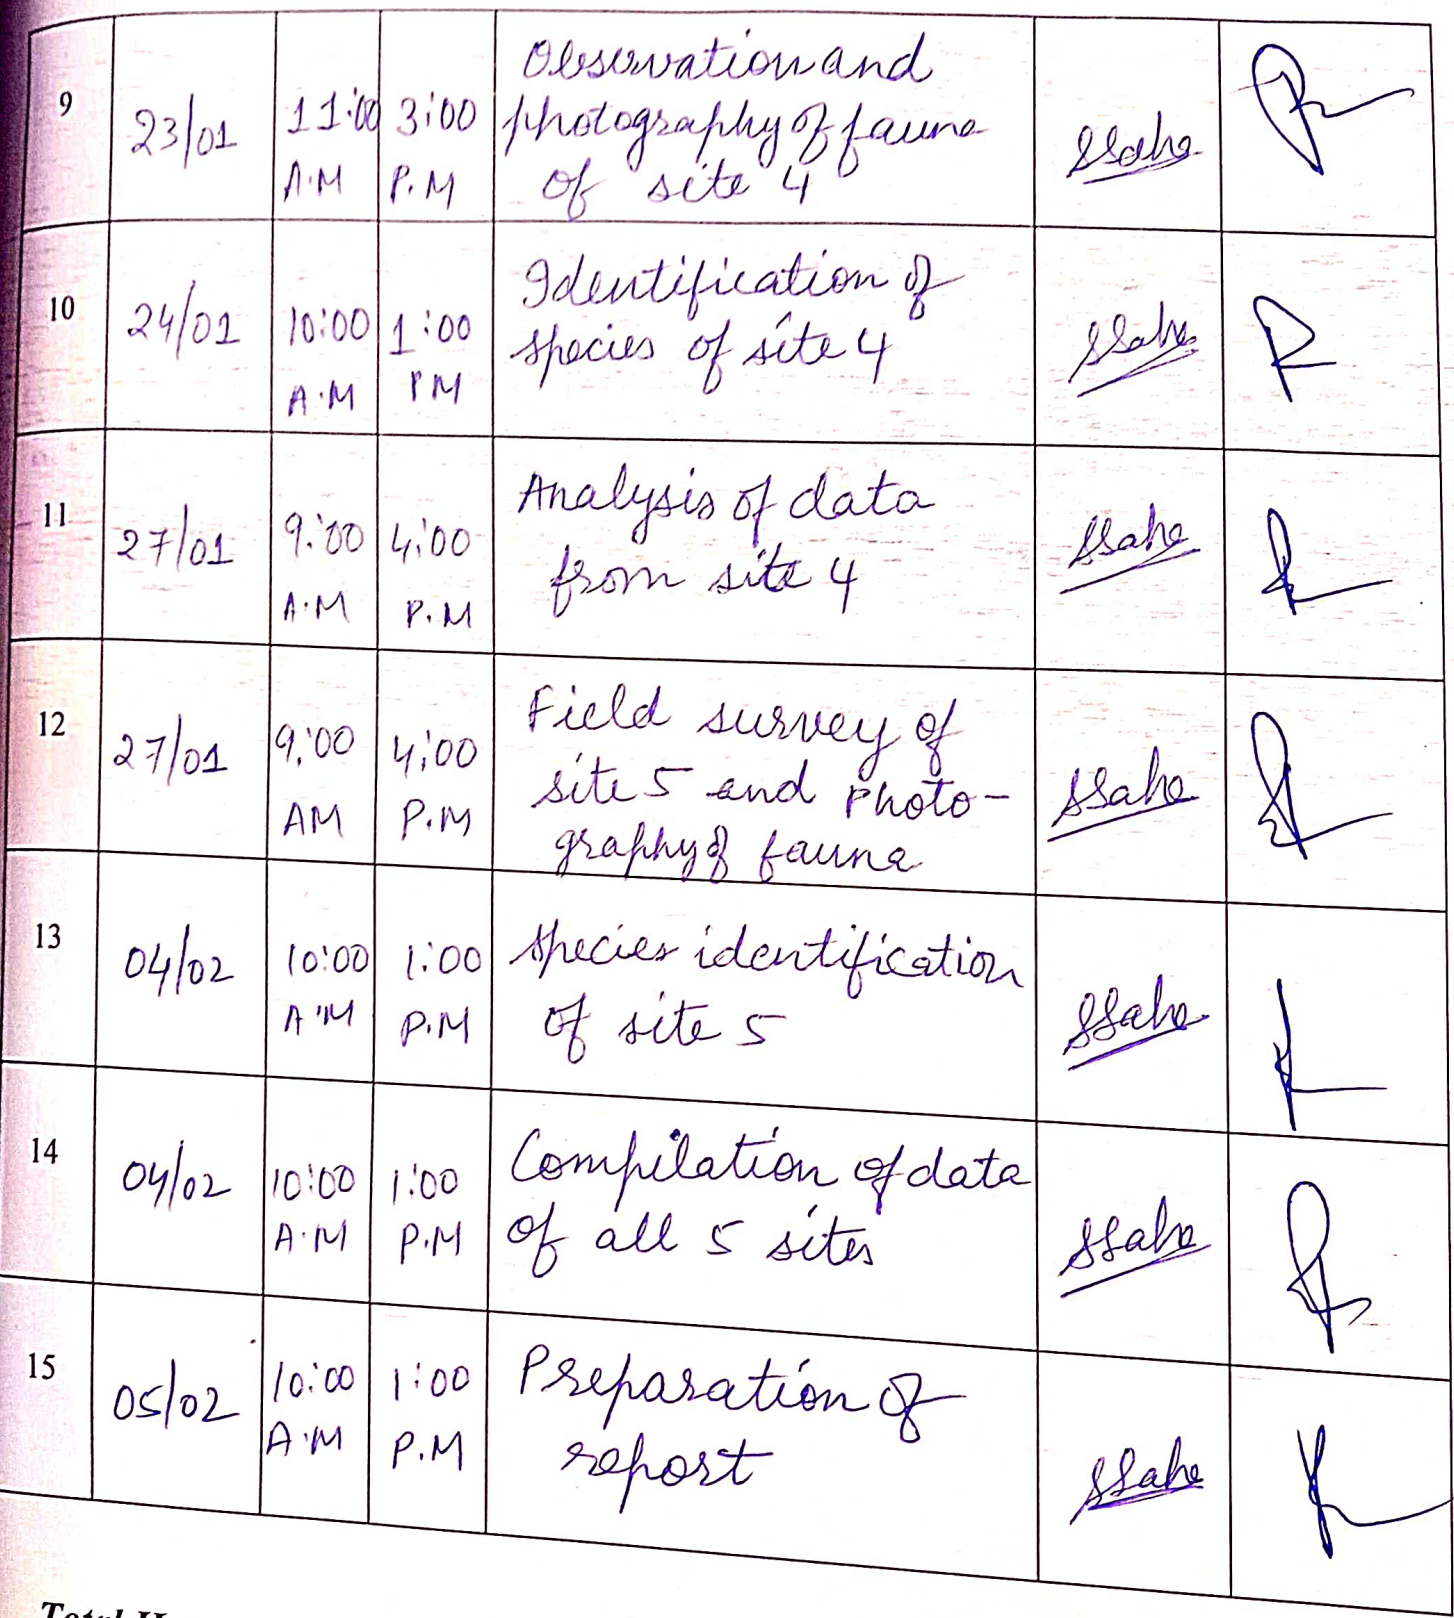 9 23/01 11:00 A.M 3:00 P.M Observation and
photography of fauna
of site 4 SSaha
10 24/01 10:00 A.M 1:00 PM Identification of
species of site 4 SSaha
11 27/01 9:00 A.M 4:00 P.M Analysis of data
from site 4 SSaha
12 27/01 9:00 AM 4:00 P.M Field survey of
site 5 and Photo-
graphy of fauna SSaha
13 04/02 10:00 A.M 1:00 P.M Species identification
of site 5 SSaha
14 04/02 10:00 A.M 1:00 P.M Compilation of data
of all 5 sites SSaha
15 05/02 10:00 A.M 1:00 P.M Preparation of
report SSaha
Total